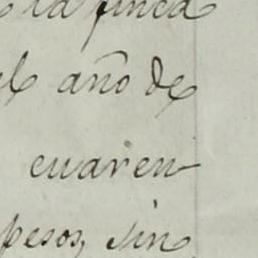 la finca
el año de
cuaren
pesos, sin